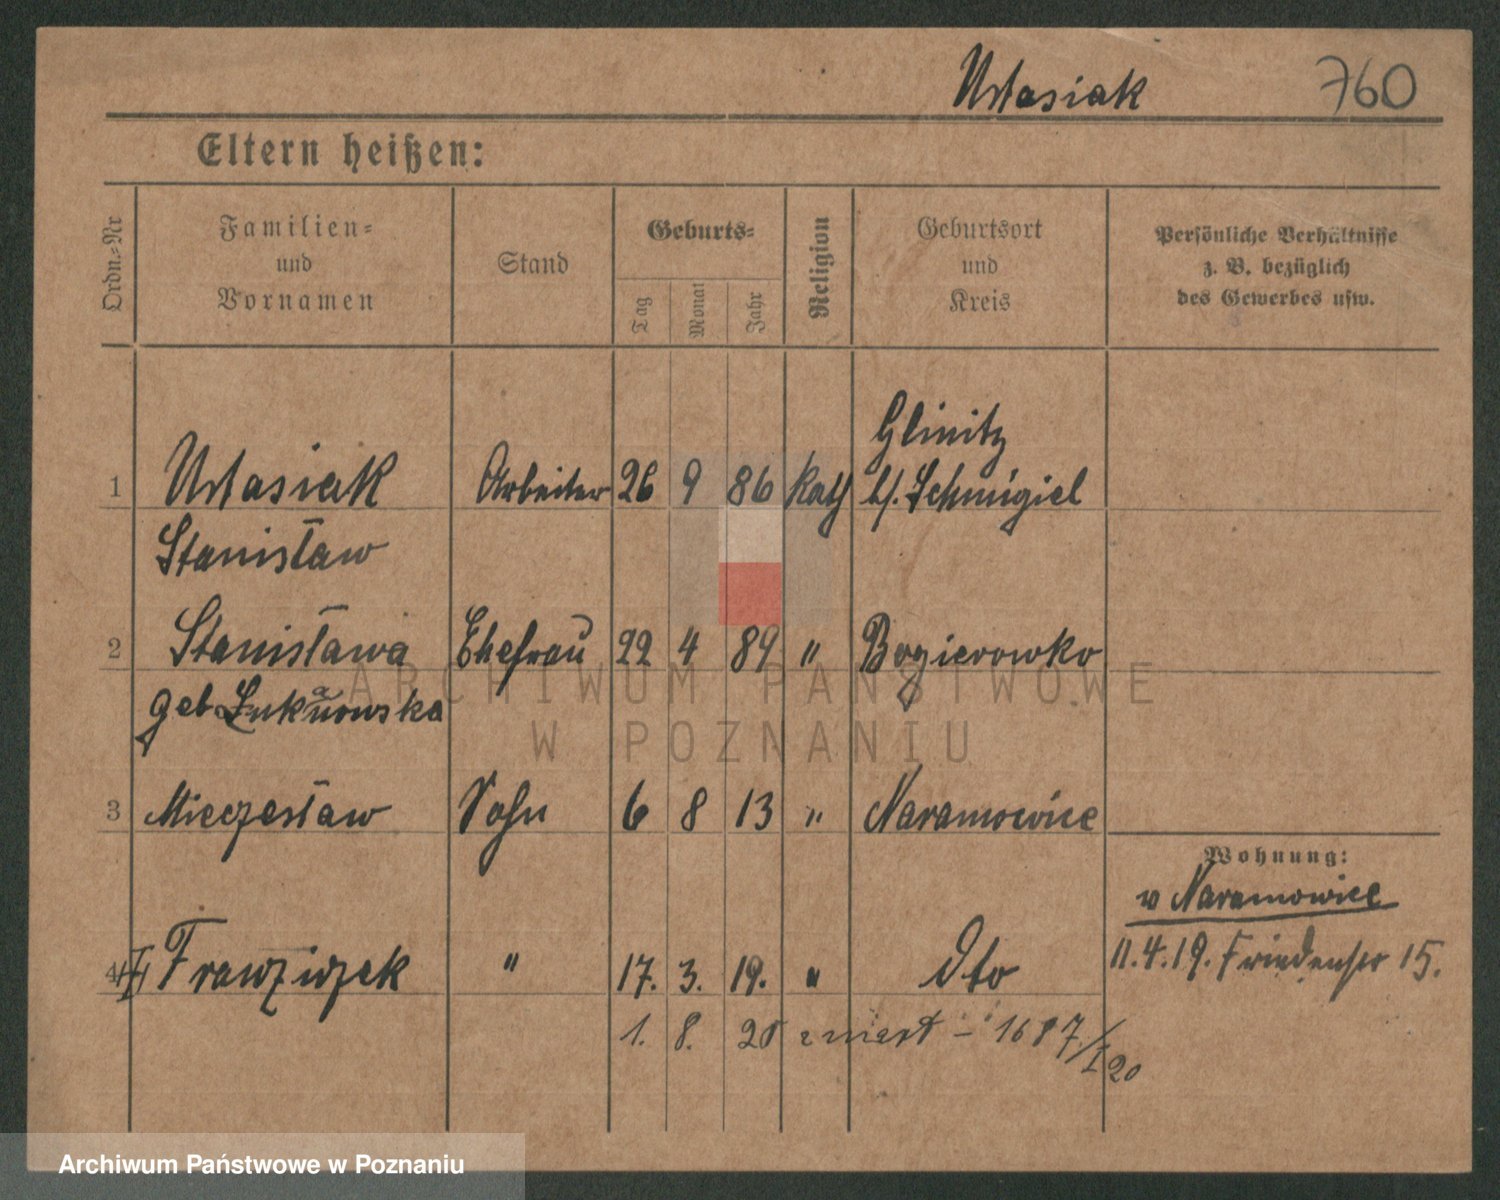 Ustasiak 760
Eltern heißen:
Ordn.-Nr
Familien-
und
Vornamen
Stand
Geburts-
Tag Monat Jahr
Religion
Geburtsort
und
Kreis
Persönliche Verhältnisse
z. B. bezüglich
des Gewerbes usw.
Glinitz
1 Ustasiak Arbeiter 26 9 86 Kath b/. Schmigiel
Stanisław
2 Stanisława Ehefrau 22 4 89 " Bogierowko
geb
3 Mieczesław Sohn 6 8 13 " Naramowice
Wohnung:
w Naramowice
4 Franziszek " 17. 3. 19. " dto
11.4.19. 15.
1. 8. 20 zmarł - 1687/I 20
ARCHIWUM PAŃSTWOWE
W POZNANIU
Archiwum Państwowe w Poznaniu